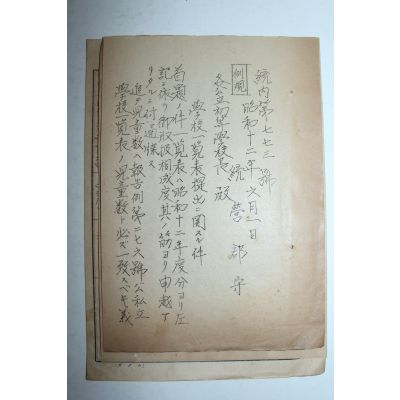 統内第一七七三號
昭和十二年六月一日
統營郡守
例規
各公立初等學校長殿
學校一覧表提出ニ関スル件
首題ノ件一覧表ハ昭和十二年度分ヨリ左
記ニ依リ御取扱相成度其ノ筋ヨリ申越
アリタルニ付通牒ス
追テ児童数ハ報告例第二七六號公私立
學校一覧表ノ児童數ト必ズ一致スベキ義